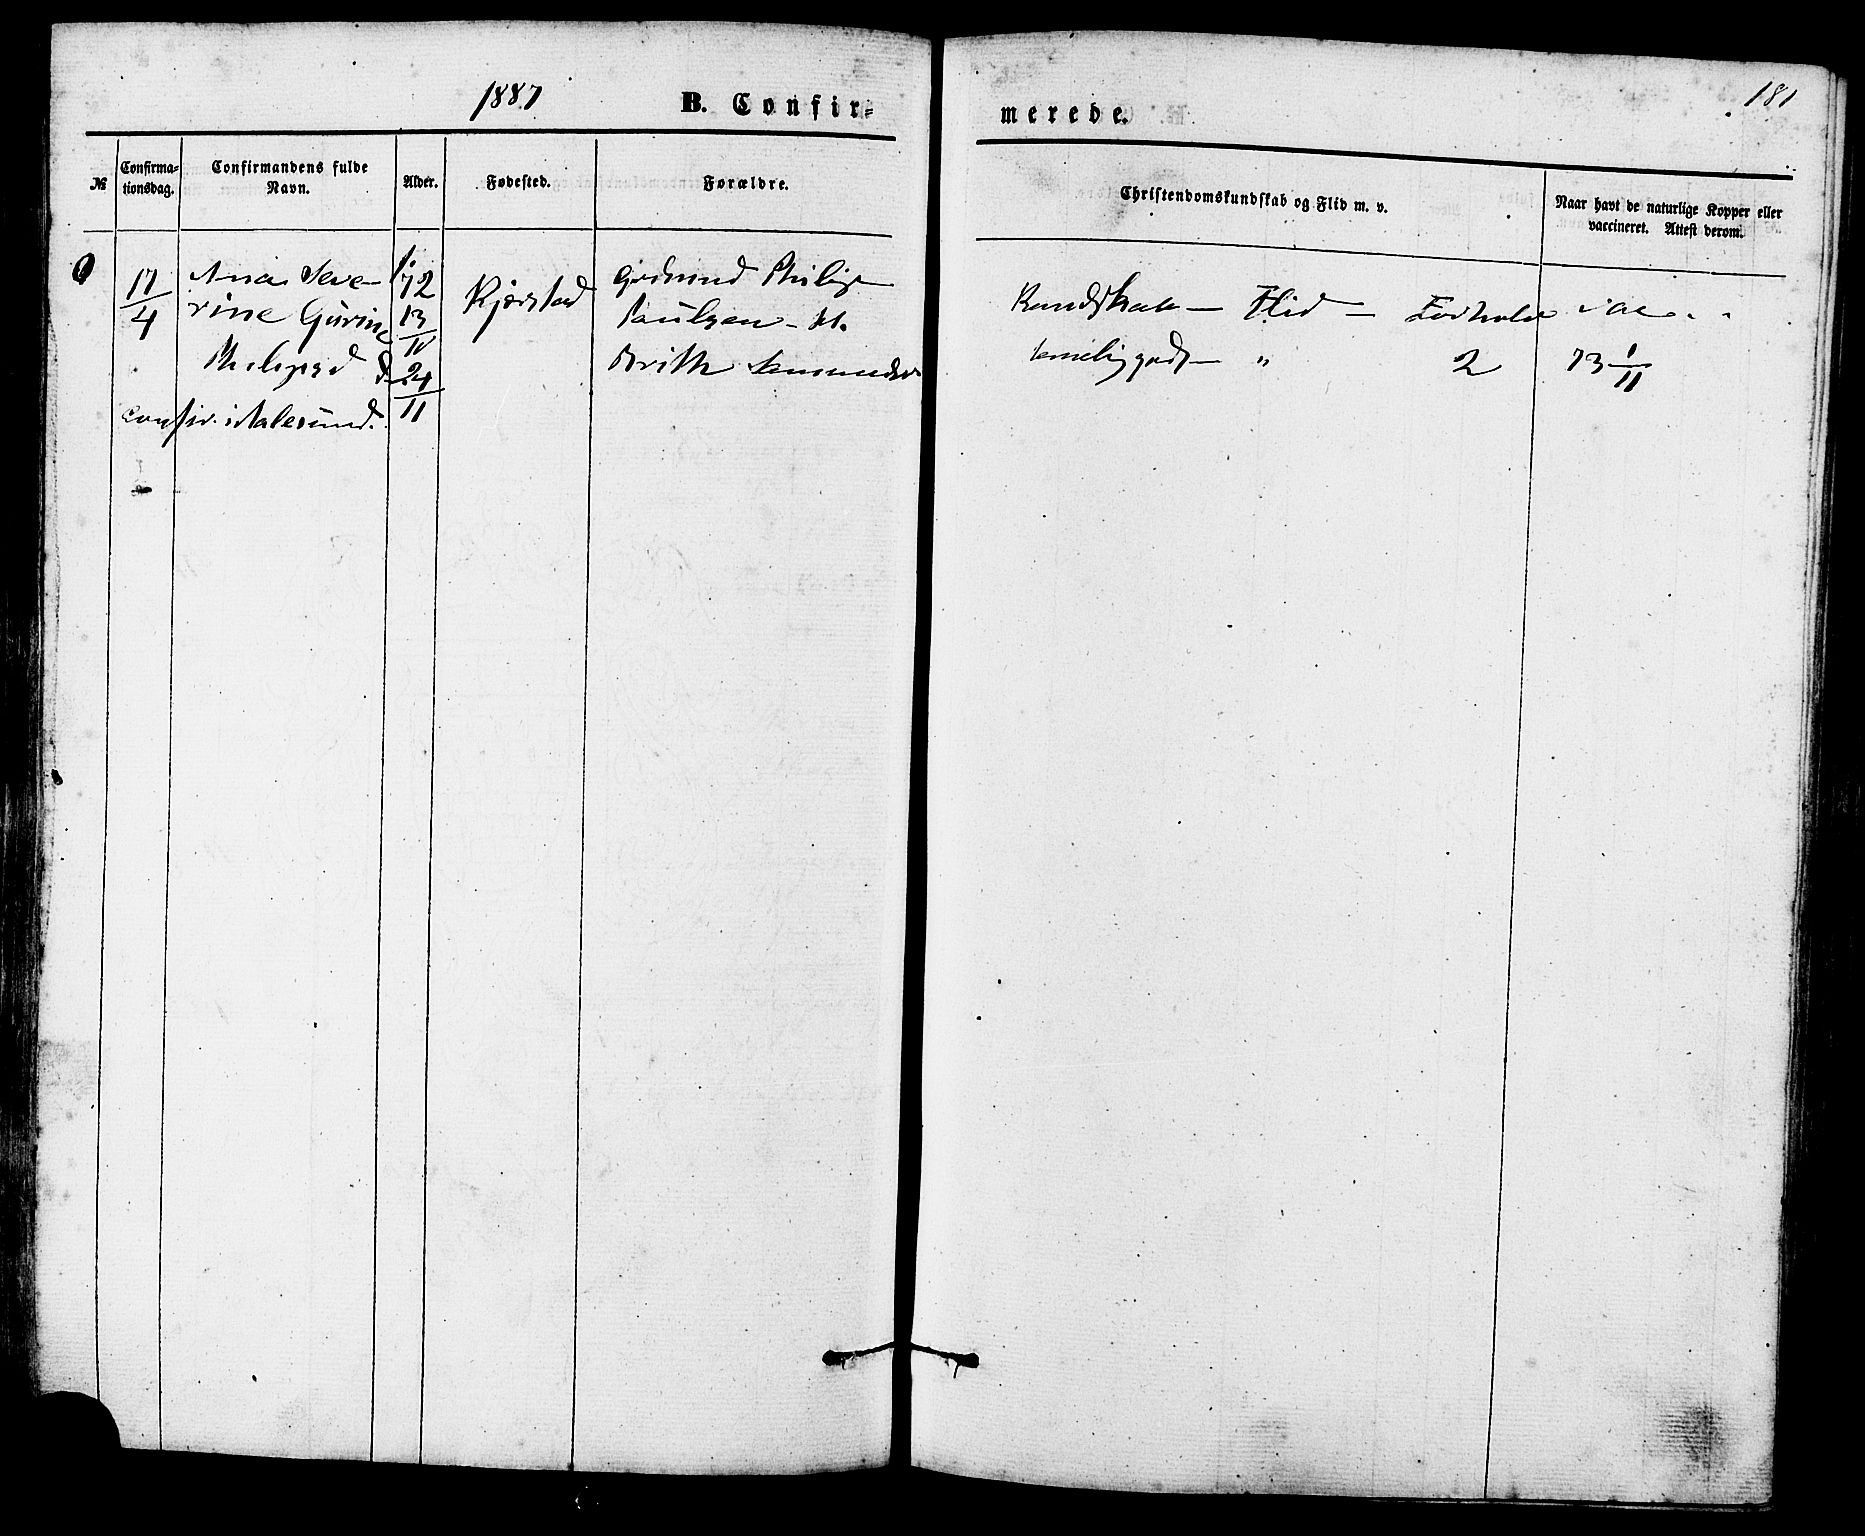 1887
B. Confir-
merede.
181
№
Confirma-
tionsdag.
Confirmandens fulde
Navn.
Alder.
Fødested.
Forældre.
Christendomskundskab og Flid m. v.
Naar havt de naturlige Kopper eller
vaccineret. Attest derom.
17/4
Ana Seve-
rine Gurine
d
confir. i Aalesund.
72
13
24/11
Kjørstad
Gudmund Philip
Paulsen
Brith
Kundskab — Flid — Forhold
temelig godt — " 2
vac.
73 1/11